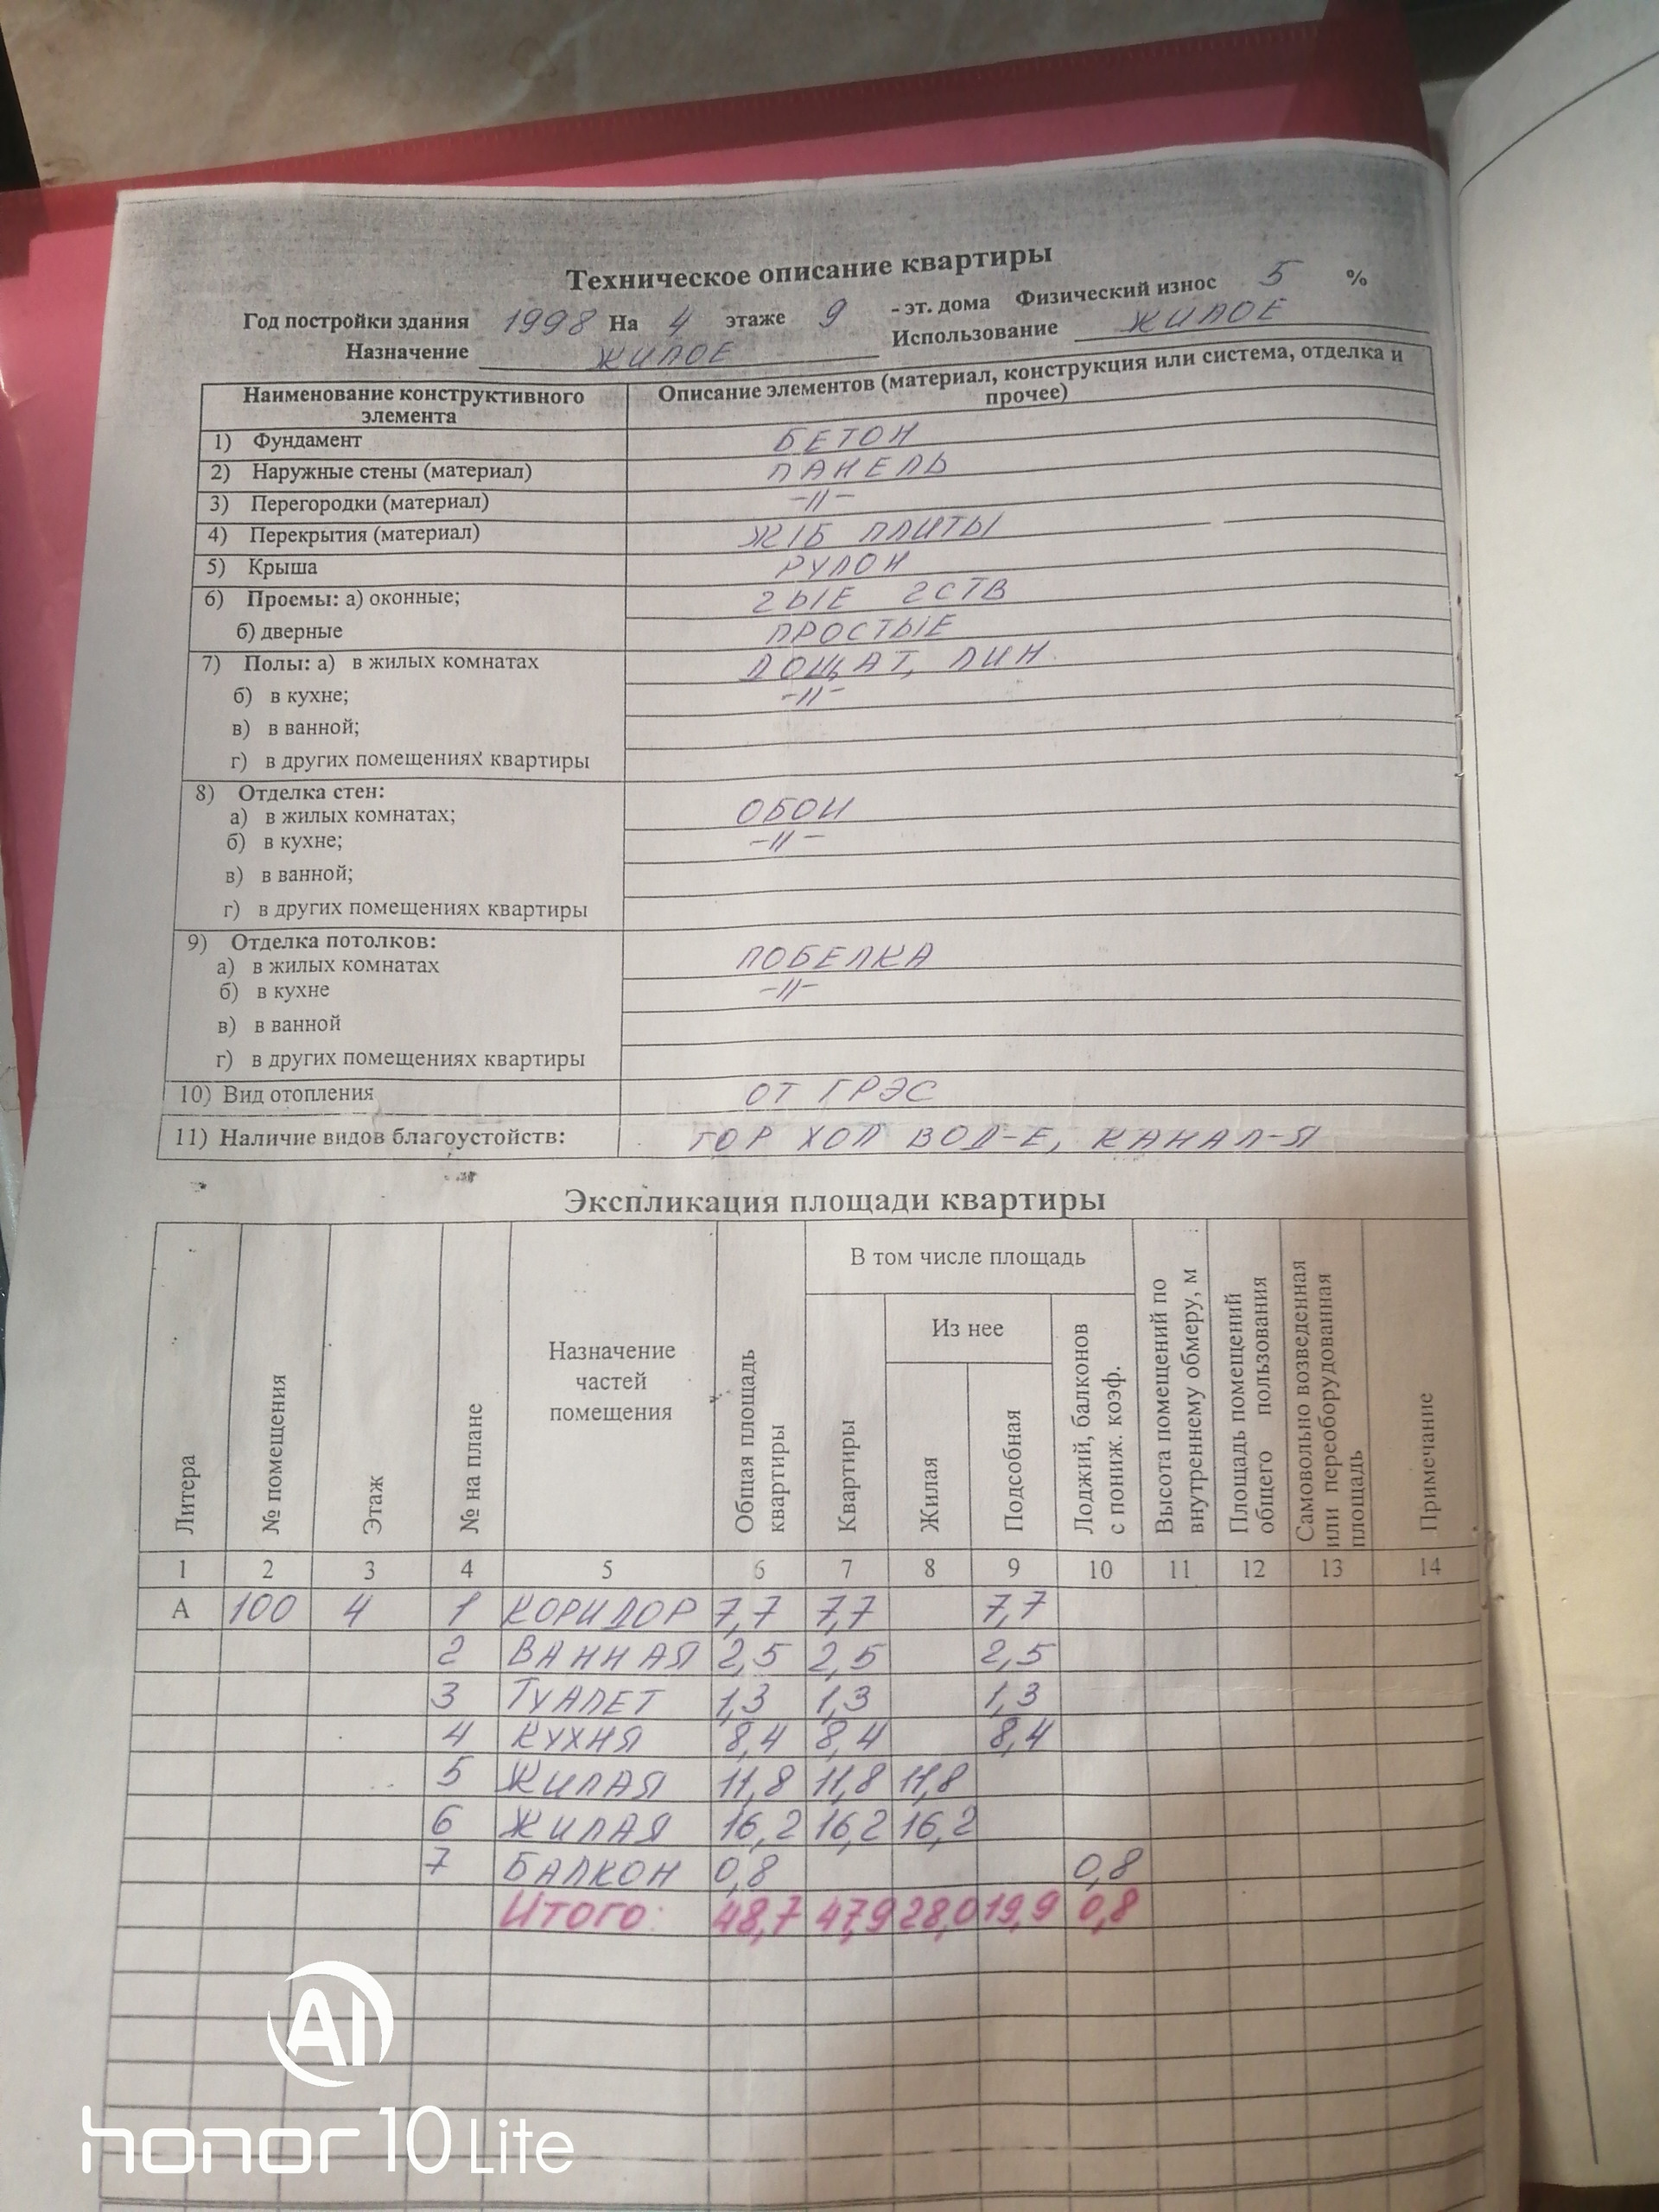 Техническое описание квартиры
Год постройки здания 1998 На 4 этаже 9 - эт. дома Физический износ 5 %
Назначение ЖИЛОЕ Использование ЖИЛОЕ
Наименование конструктивного элемента Описание элементов (материал, конструкция или система, отделка и прочее)
1) Фундамент БЕТОН
2) Наружные стены (материал) ПАНЕЛЬ
3) Перегородки (материал) -//-
4) Перекрытия (материал) Ж/Б ПЛИТЫ
5) Крыша РУЛОН
6) Проемы: а) оконные; 2ЫЕ 2СТВ
б) дверные ПРОСТЫЕ
7) Полы: а) в жилых комнатах ДОЩАТ, ЛИН.
б) в кухне; -//-
в) в ванной;
г) в других помещениях квартиры
8) Отделка стен:
а) в жилых комнатах; ОБОИ
б) в кухне; -//-
в) в ванной;
г) в других помещениях квартиры
9) Отделка потолков:
а) в жилых комнатах ПОБЕЛКА
б) в кухне -//-
в) в ванной
г) в других помещениях квартиры
10) Вид отопления ОТ ГРЭС
11) Наличие видов благоустойств: ГОР ХОЛ ВОД-Е, КАНАЛ-Я
Экспликация площади квартиры
Литера
№ помещения
Этаж
№ на плане
Назначение частей помещения
Общая площадь квартиры
В том числе площадь
Квартиры
Из нее
Жилая
Подсобная
Лоджий, балконов с пониж. коэф.
Высота помещений по внутреннему обмеру, м
Площадь помещений общего пользования
Самовольно возведенная или переоборудованная площадь
Примечание
1 2 3 4 5 6 7 8 9 10 11 12 13 14
А 100 4 1 КОРИДОР 7,7 7,7 7,7
2 ВАННАЯ 2,5 2,5 2,5
3 ТУАЛЕТ 1,3 1,3 1,3
4 КУХНЯ 8,4 8,4 8,4
5 ЖИЛАЯ 11,8 11,8 11,8
6 ЖИЛАЯ 16,2 16,2 16,2
7 БАЛКОН 0,8 0,8
Итого: 48,7 47,9 28,0 19,9 0,8
AI
honor 10 Lite